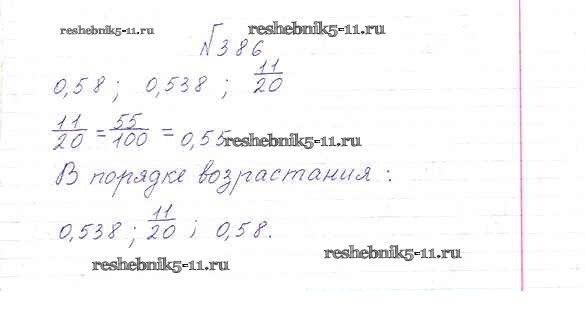 reshebnik5-11.ru reshebnik5-11.ru
№386
0,58 ; 0,538 ; 11/20
11/20 = 55/100 = 0,55 reshebnik5-11.ru
В порядке возрастания :
0,538 ; 11/20 ; 0,58.
reshebnik5-11.ru reshebnik5-11.ru